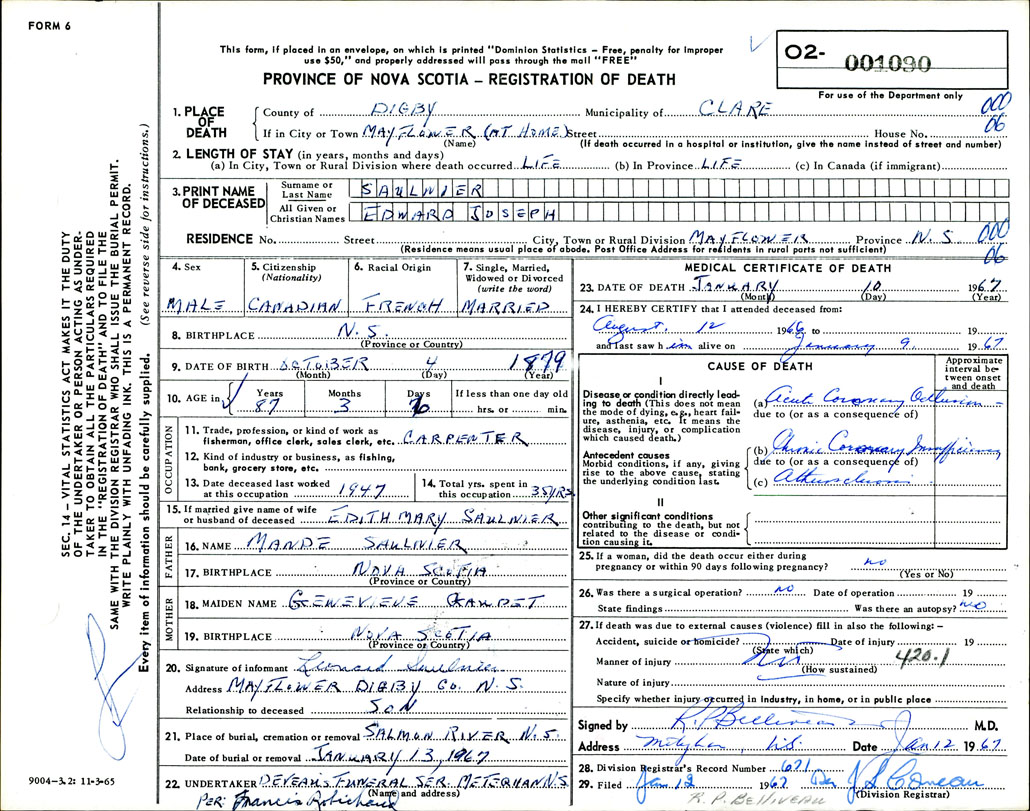 FORM 6
This form, if placed in an envelope, on which is printed "Dominion Statistics – Free, penalty for improper
use $50," and properly addressed will pass through the mail "FREE"
PROVINCE OF NOVA SCOTIA – REGISTRATION OF DEATH
O2- 001090
For use of the Department only
SEC. 14 – VITAL STATISTICS ACT MAKES IT THE DUTY
OF THE UNDERTAKER OR PERSON ACTING AS UNDER-
TAKER TO OBTAIN ALL THE PARTICULARS REQUIRED
IN THE "REGISTRATION OF DEATH" AND TO FILE THE
SAME WITH THE DIVISION REGISTRAR WHO SHALL ISSUE THE BURIAL PERMIT.
WRITE PLAINLY WITH UNFADING INK. THIS IS A PERMANENT RECORD.
Every item of information should be carefully supplied. (See reverse side for instructions.)
9004-3.2: 11-3-65
1. PLACE OF DEATH
County of DIGBY Municipality of CLARE 000
06
If in City or Town MAYFLOWER (AT HOME) Street House No.
(Name) (If death occurred in a hospital or institution, give the name instead of street and number)
2. LENGTH OF STAY (in years, months and days)
(a) In City, Town or Rural Division where death occurred LIFE (b) In Province LIFE (c) In Canada (if immigrant)
3. PRINT NAME OF DECEASED
Surname or Last Name SAULNIER
All Given or Christian Names EDWARD JOSEPH
RESIDENCE No. Street City, Town or Rural Division MAYFLOWER Province N.S 000
06
(Residence means usual place of abode. Post Office Address for residents in rural parts not sufficient)
4. Sex MALE
5. Citizenship (Nationality) CANADIAN
6. Racial Origin FRENCH
7. Single, Married, Widowed or Divorced (write the word) MARRIED
8. BIRTHPLACE N.S.
(Province or Country)
9. DATE OF BIRTH OCTOBER 4 1879
(Month) (Day) (Year)
10. AGE in Years Months Days If less than one day old
87 3 6 hrs. or min.
OCCUPATION
11. Trade, profession, or kind of work as
fisherman, office clerk, sales clerk, etc. CARPENTER
12. Kind of industry or business, as fishing,
bank, grocery store, etc.
13. Date deceased last worked
at this occupation 1947
14. Total yrs. spent in
this occupation 35 YRS
15. If married give name of wife
or husband of deceased EDITH MARY SAULNIER
FATHER
16. NAME MANDE SAULNIER
17. BIRTHPLACE NOVA SCOTIA
(Province or Country)
MOTHER
18. MAIDEN NAME GENEVIENE GAUDET
19. BIRTHPLACE NOVA SCOTIA
(Province or Country)
20. Signature of informant Leonard Saulnier
Address MAYFLOWER DIGBY Co. N.S.
Relationship to deceased SON
21. Place of burial, cremation or removal SALMON RIVER N.S.
Date of burial or removal JANUARY 13, 1967
22. UNDERTAKER DEVEAU'S FUNERAL SER. METEGHAN N.S
(Name and address)
PER: Francis Robichaud
MEDICAL CERTIFICATE OF DEATH
23. DATE OF DEATH JANUARY 10 1967
(Month) (Day) (Year)
24. I HEREBY CERTIFY that I attended deceased from:
August 12 1966 to 19
and last saw him alive on January 9 1967
CAUSE OF DEATH
Approximate interval between onset and death
I
Disease or condition directly lead-
ing to death (This does not mean
the mode of dying, e.g., heart fail-
ure, asthenia, etc. It means the
disease, injury, or complication
which caused death.)
(a) Acute Coronary Occlusion
due to (or as a consequence of)
Antecedent causes
Morbid conditions, if any, giving
rise to the above cause, stating
the underlying condition last.
(b) Chronic Coronary Insufficiency
due to (or as a consequence of)
(c) Atherosclerosis
II
Other significant conditions
contributing to the death, but not
related to the disease or condi-
tion causing it.
25. If a woman, did the death occur either during
pregnancy or within 90 days following pregnancy? no
(Yes or No)
26. Was there a surgical operation? no Date of operation 19
State findings Was there an autopsy? no
27. If death was due to external causes (violence) fill in also the following: –
Accident, suicide or homicide? Date of injury 19
(State which)
Manner of injury 420.1
(How sustained)
Nature of injury
Specify whether injury occurred in industry, in home, or in public place
Signed by R.P. Belliveau M.D.
Address Meteghan, N.S. Date Jan 12 1967
28. Division Registrar's Record Number 671
29. Filed Jan 12 1967
(Division Registrar)
R. P. BELLIVEAU